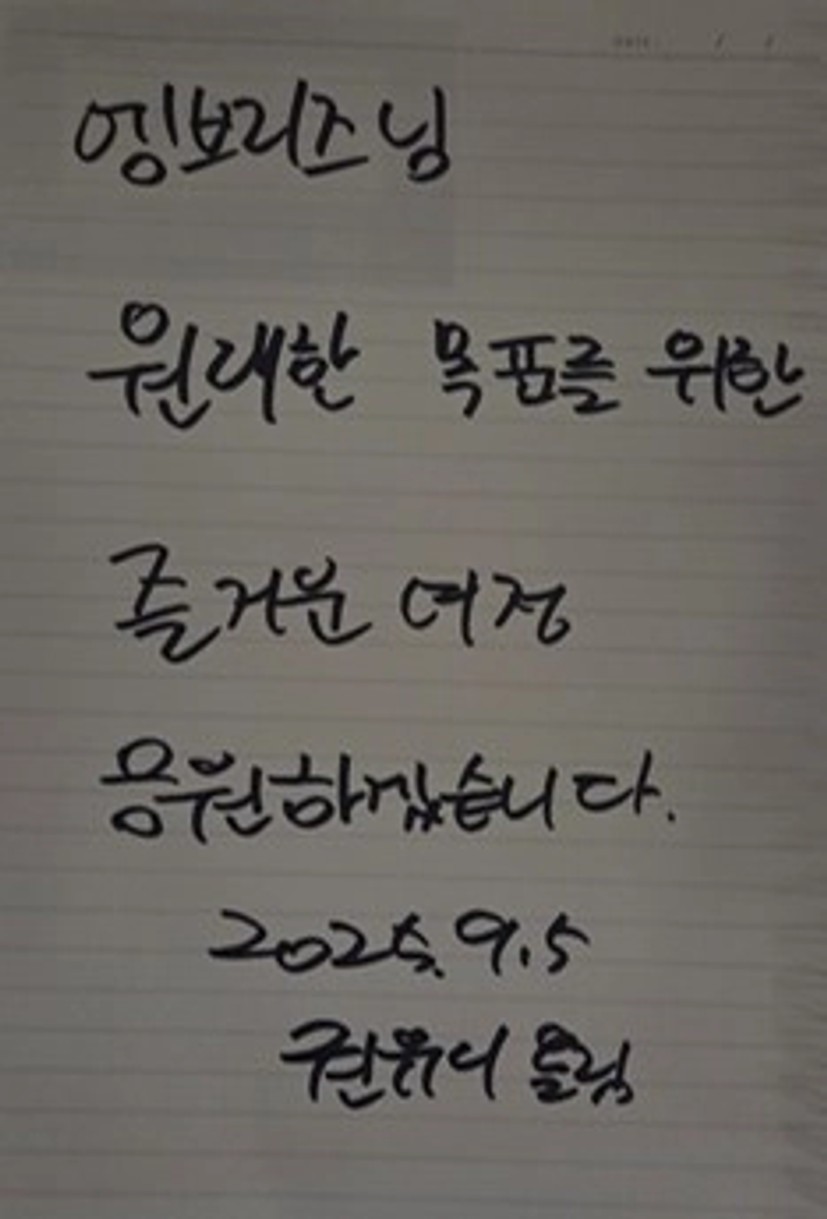 엥보리즈님
원대한 목표를 위한
즐거운 여정
응원하겠습니다.
2025. 9. 5
권유디 올림